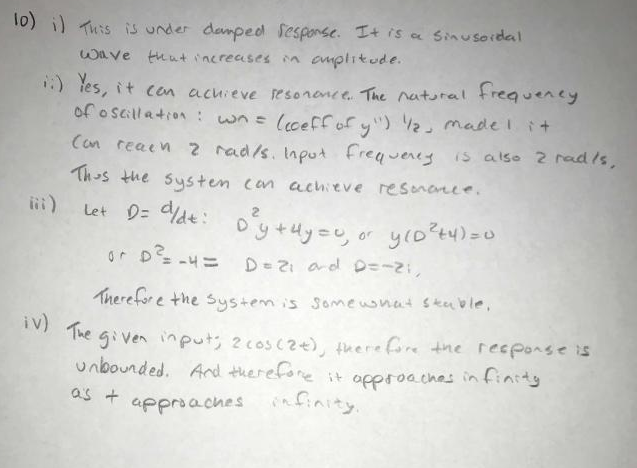 10) i) This is under damped response. It is a sinusoidal
wave that increases in amplitude.
ii) Yes, it can achieve resonance. The natural frequency
of oscillation: wn = (coeff of y") 1/2, made 1. it
Can reach 2 rad/s. Input frequency is also 2 rad/s.
Thus the system can achieve resonance.
iii) Let D = d/dt: D²y+4y=0, or y(D²+4)=0
or D²=-4 = D=2i and D=-2i,
Therefore the system is somewhat stable.
iv) The given input; 2cos(2t), therefore the response is
unbounded. And therefore it approaches infinity
as t approaches infinity.